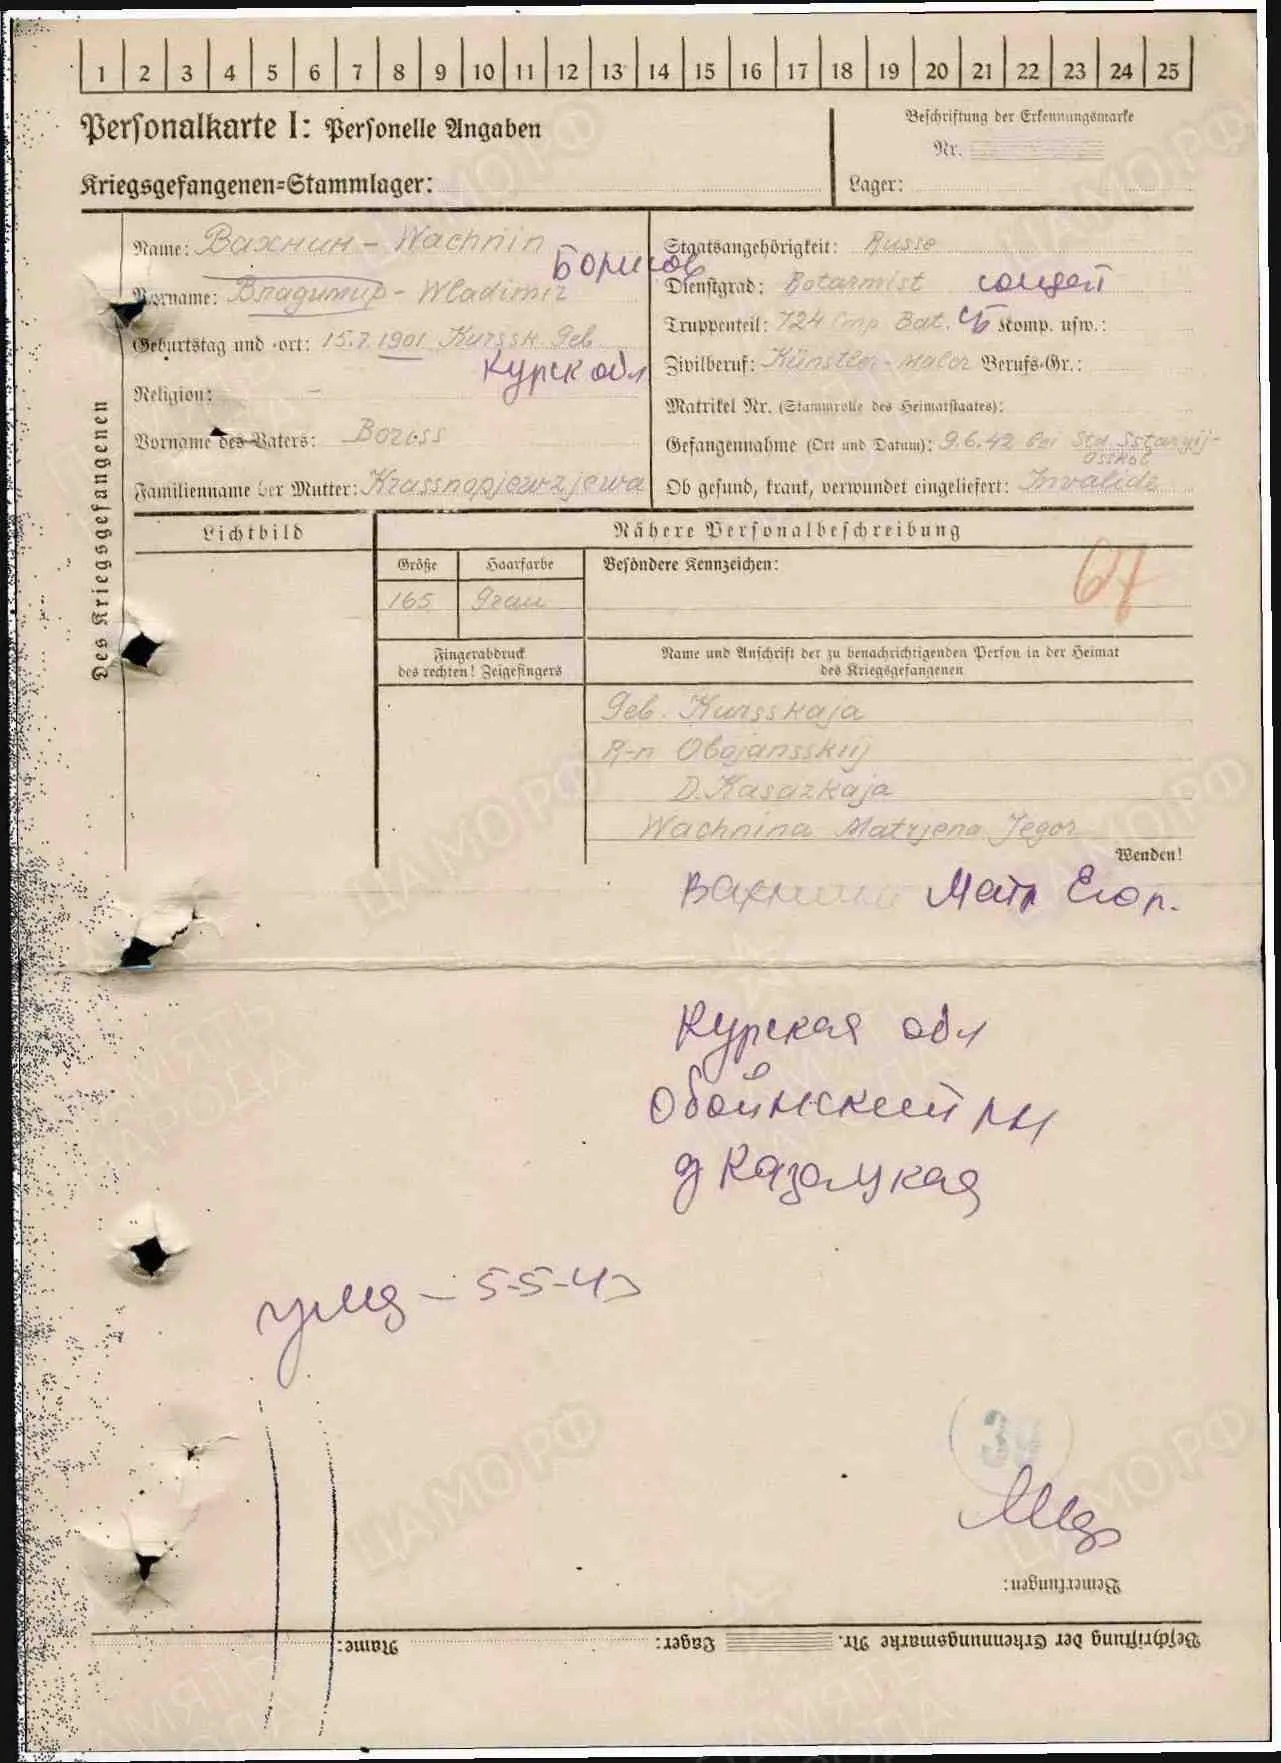 1 2 3 4 5 6 7 8 9 10 11 12 13 14 15 16 17 18 19 20 21 22 23 24 25
Personalkarte I: Personelle Angaben
Beschriftung der Erkennungsmarke
Nr.
Kriegsgefangenen=Stammlager:
Lager:
Des Kriegsgefangenen
Name: Вахнин - Wachnin
Борисов
Vorname: Владимир - Wladimir
Geburtstag und =ort: 15.7.1901 Kurssk Geb
Курск обл
Religion: -
Vorname des Vaters: Boriss
Familienname der Mutter: Krassnopjewzjewa
Staatsangehörigkeit: Russe
Dienstgrad: Rotarmist
Truppenteil: 724 Bat. Сб Komp. usw.:
Zivilberuf: Künstler-Maler Berufs=Gr.:
Matrikel Nr. (Stammrolle des Heimatstaates):
Gefangennahme (Ort und Datum): 9.6.42 bei Std. Sstaryij-
Osskol
Ob gesund, krank, verwundet eingeliefert: Invalide
Lichtbild
Nähere Personalbeschreibung
Größe
Haarfarbe
Besondere Kennzeichen:
165
Grau
67
Fingerabdruck
des rechten! Zeigefingers
Name und Anschrift der zu benachrichtigenden Person in der Heimat
des Kriegsgefangenen
Geb. Kursskaja
R-n Obojansskij
D. Kasazkaja
Wachnina Matrjena Jegor
Wenden!
Вахнина Матр Егор.
Курская обл
Обоянский рн
д Казацкая
5-5-43
Bemerkungen:
Beschriftung der Erkennungsmarke Nr.
Lager:
Name:
ЦАМО РФ
ПАМЯТЬ
НАРОДА